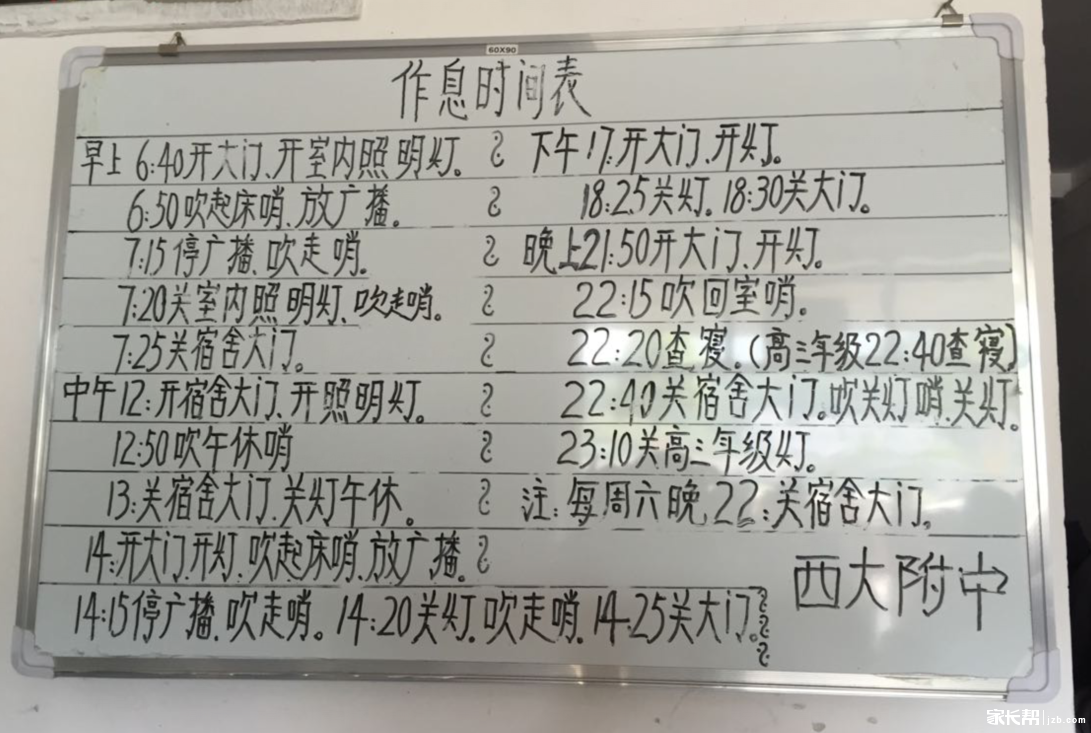 60X90
作息时间表
早上 6:40开大门、开室内照明灯。
6:50吹起床哨、放广播。
7:15停广播、吹走哨。
7:20关室内照明灯、吹走哨。
7:25关宿舍大门。
中午12:开宿舍大门、开照明灯。
12:50吹午休哨
13:关宿舍大门、关灯午休。
14:开大门、开灯、吹起床哨、放广播。
14:15停广播、吹走哨。14:20关灯、吹走哨、14:25关大门。
下午17:开大门、开灯。
18:25关灯。18:30关大门。
晚上21:50开大门、开灯。
22:15吹回室哨。
22:20查寝。(高三年级22:40查寝)
22:40关宿舍大门。吹关灯哨、关灯。
23:10关高三年级灯。
注:每周六晚22:关宿舍大门。
西大附中
家长帮 jzb.com